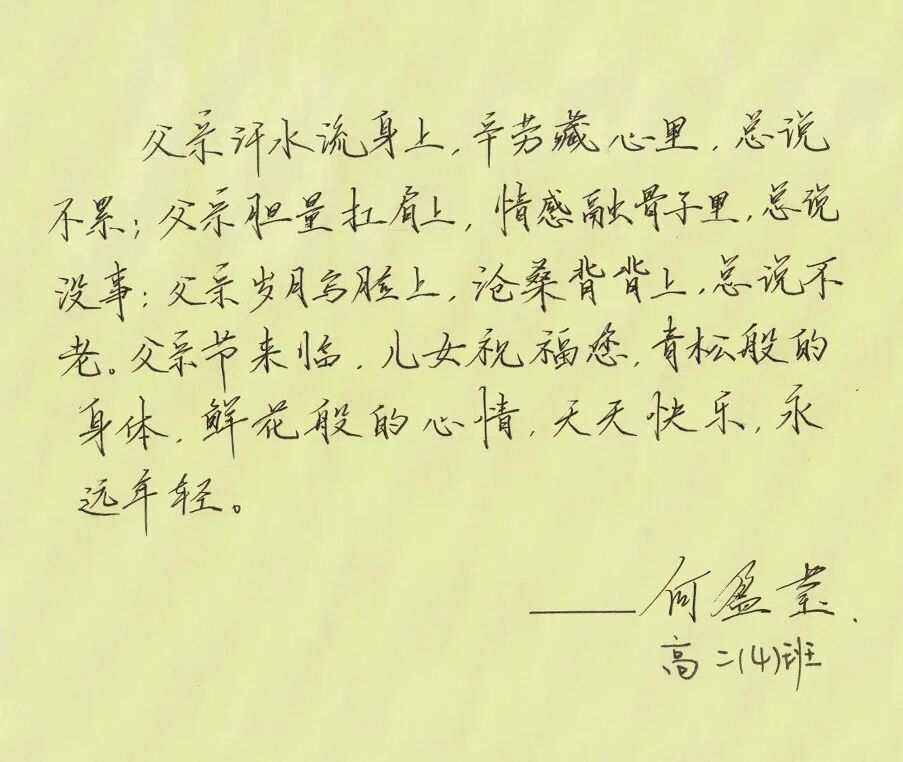 父亲汗水流身上,辛劳藏心里,总说
不累;父亲胆量扛肩上,情感融骨子里,总说
没事;父亲岁月写脸上,沧桑背背上,总说不
老。父亲节来临,儿女祝福您,青松般的
身体,鲜花般的心情,天天快乐,永
远年轻。
——何盈莹.
高二(4)班